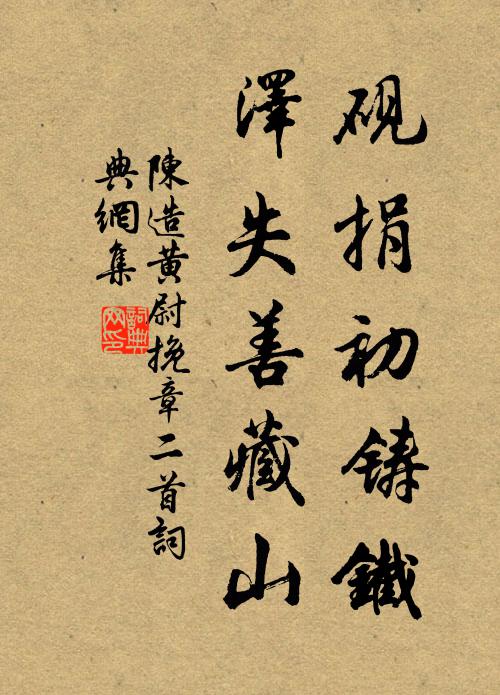 硯捐初鑄鐵
澤失善藏山
陳造黃尉挽章二首詞
典網集
詞典
网印